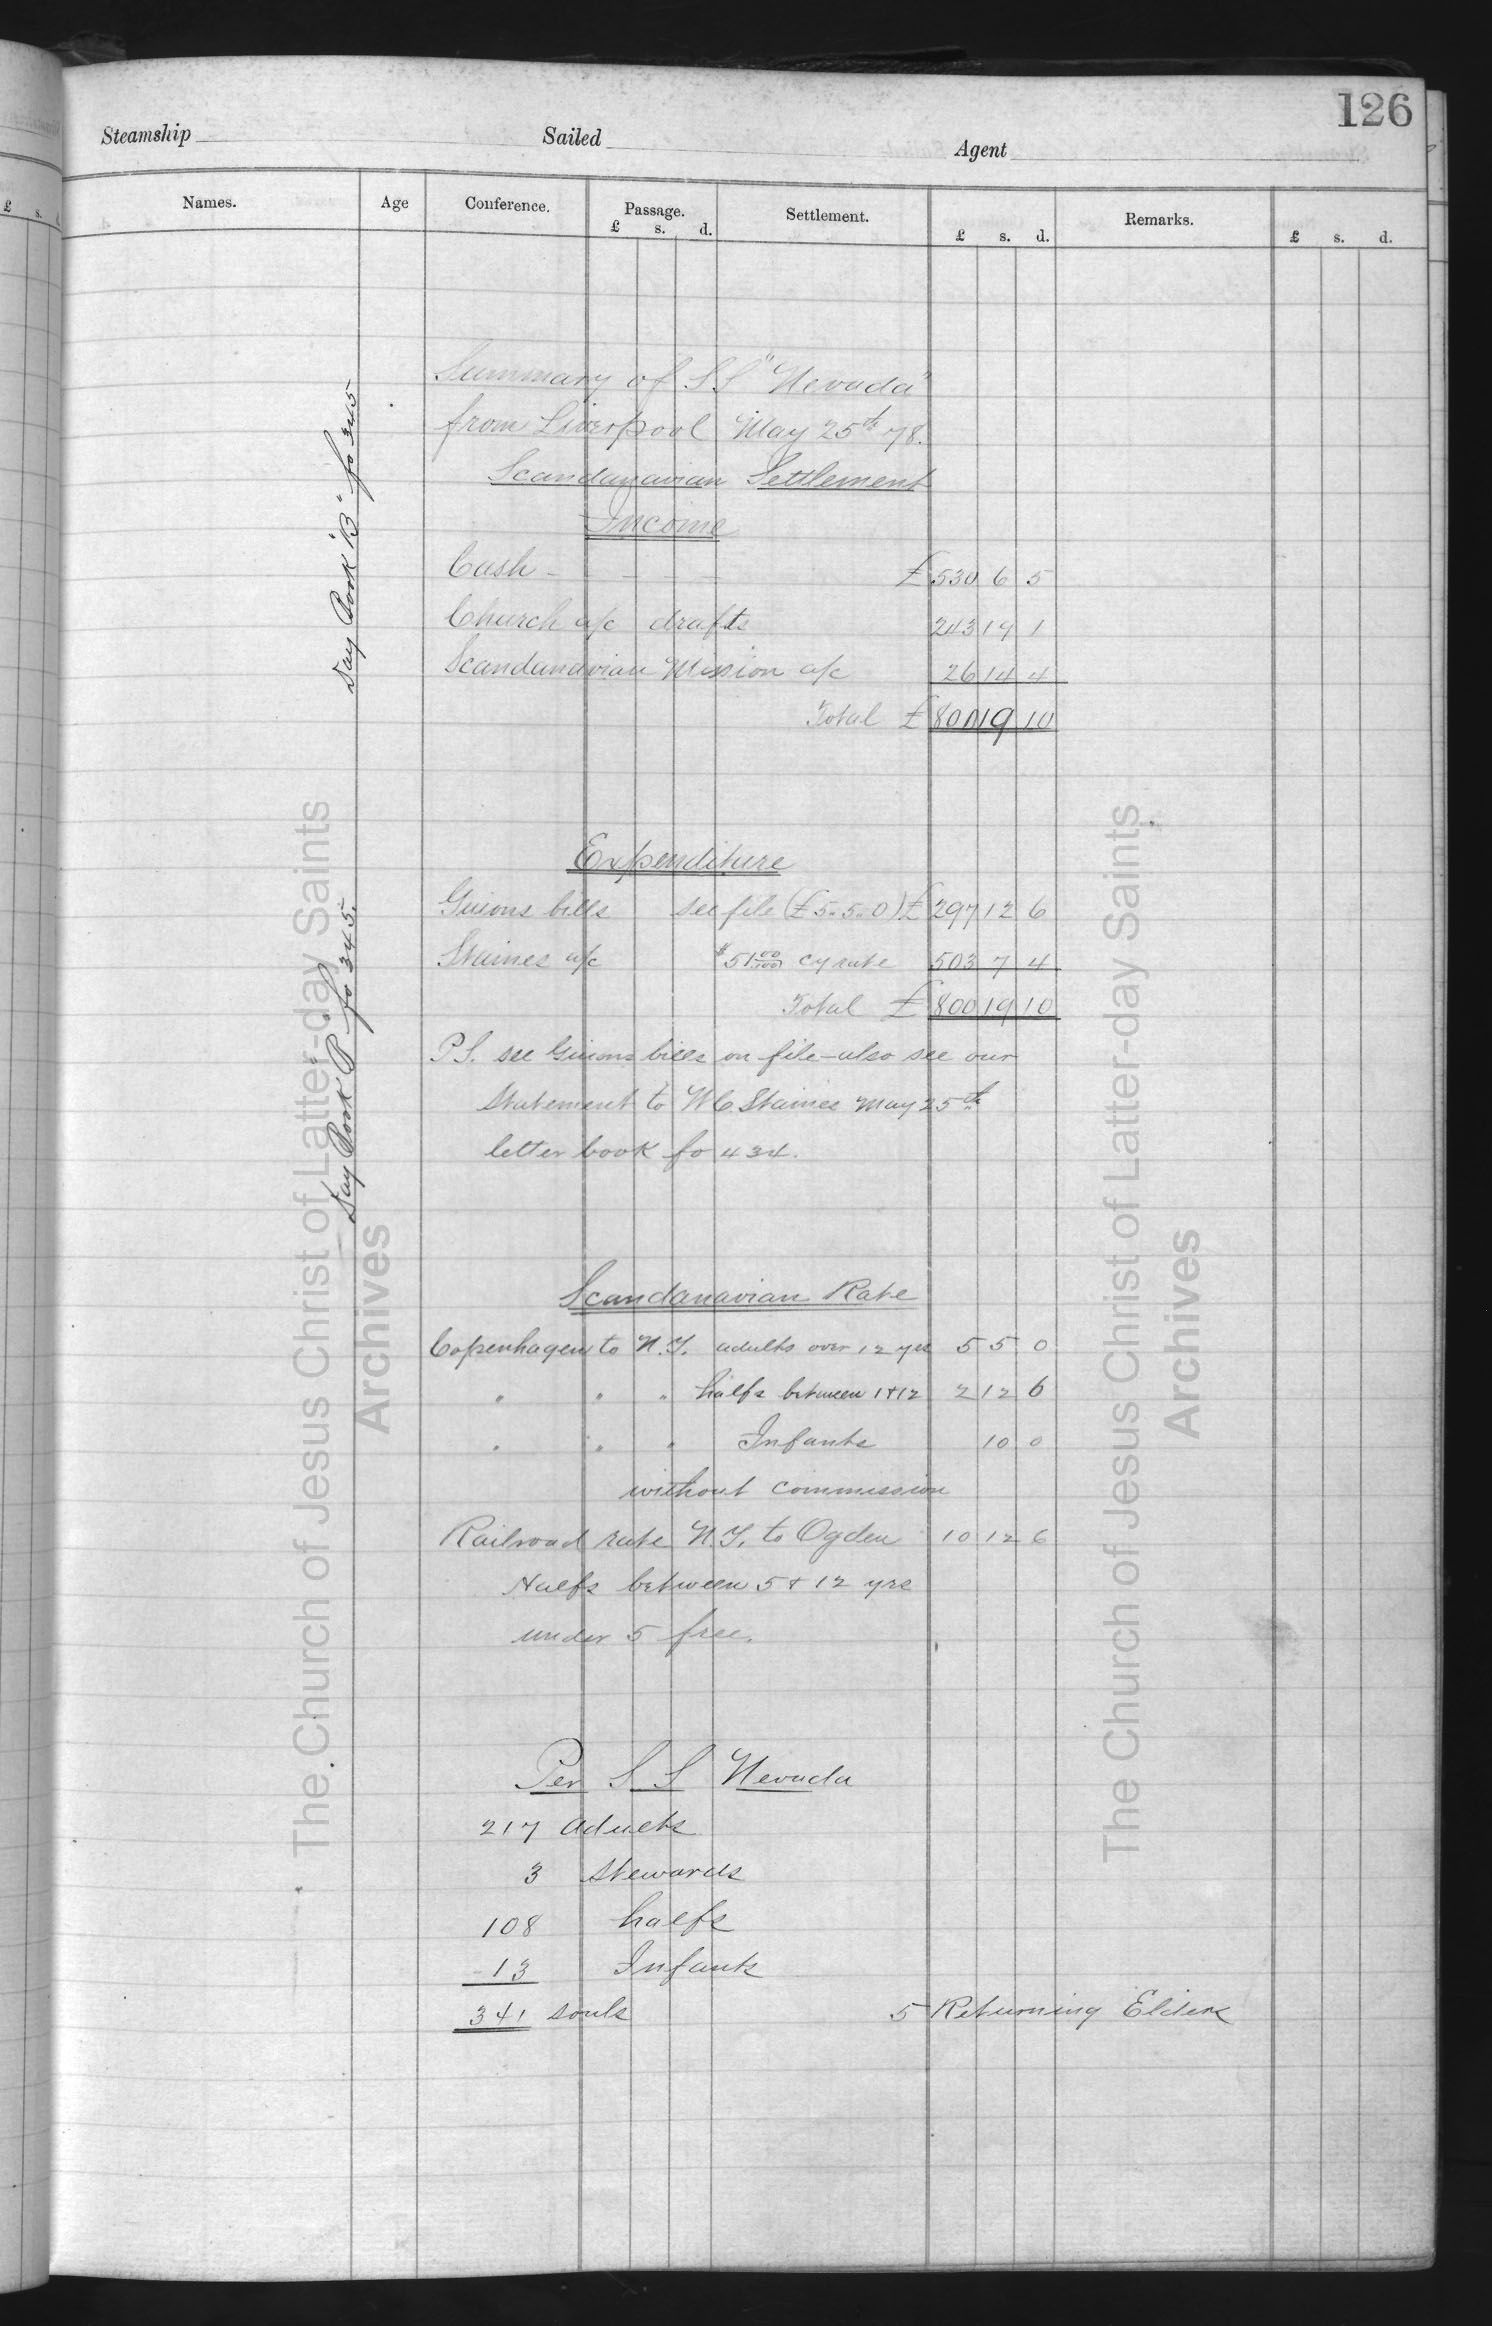 126
Steamship Sailed Agent
Names. Age Conference. Passage. Settlement. Remarks.
£ s. d. £ s. d. £ s. d.
Summary of S S "Nevada"
from Liverpool May 25th 78.
Scandanavian Settlement
Income
Cash - £ 530 6 5
Church a/c drafts 243 19 1
Scandanavian Mission a/c 26 14 4
Total £ 800 19 10
Day Book "B" fo 345
Expenditure
Guions bills see file (£5.5.0) £ 297 12 6
Staines a/c $51 00/100 cy rate 503 7 4
Total £ 800 19 10
Day Book B fo 345.
P.S. see Guions bills on file - also see our
statement to W C Staines May 25th
letter book fo 434.
Scandanavian Rate
Copenhagen to N.Y. adults over 12 yrs 5 5 0
" " " halfs between 1 & 12 2 12 6
" " " Infants 10 0
without commission
Railroad rate N.Y. to Ogden 10 12 6
Halfs between 5 & 12 yrs
under 5 free.
Per S S Nevada
217 Adults
3 stewards
108 halfs
13 Infants
341 souls 5 Returning Elders
The Church of Jesus Christ of Latter-day Saints
Archives
The Church of Jesus Christ of Latter-day Saints
Archives
£ s.